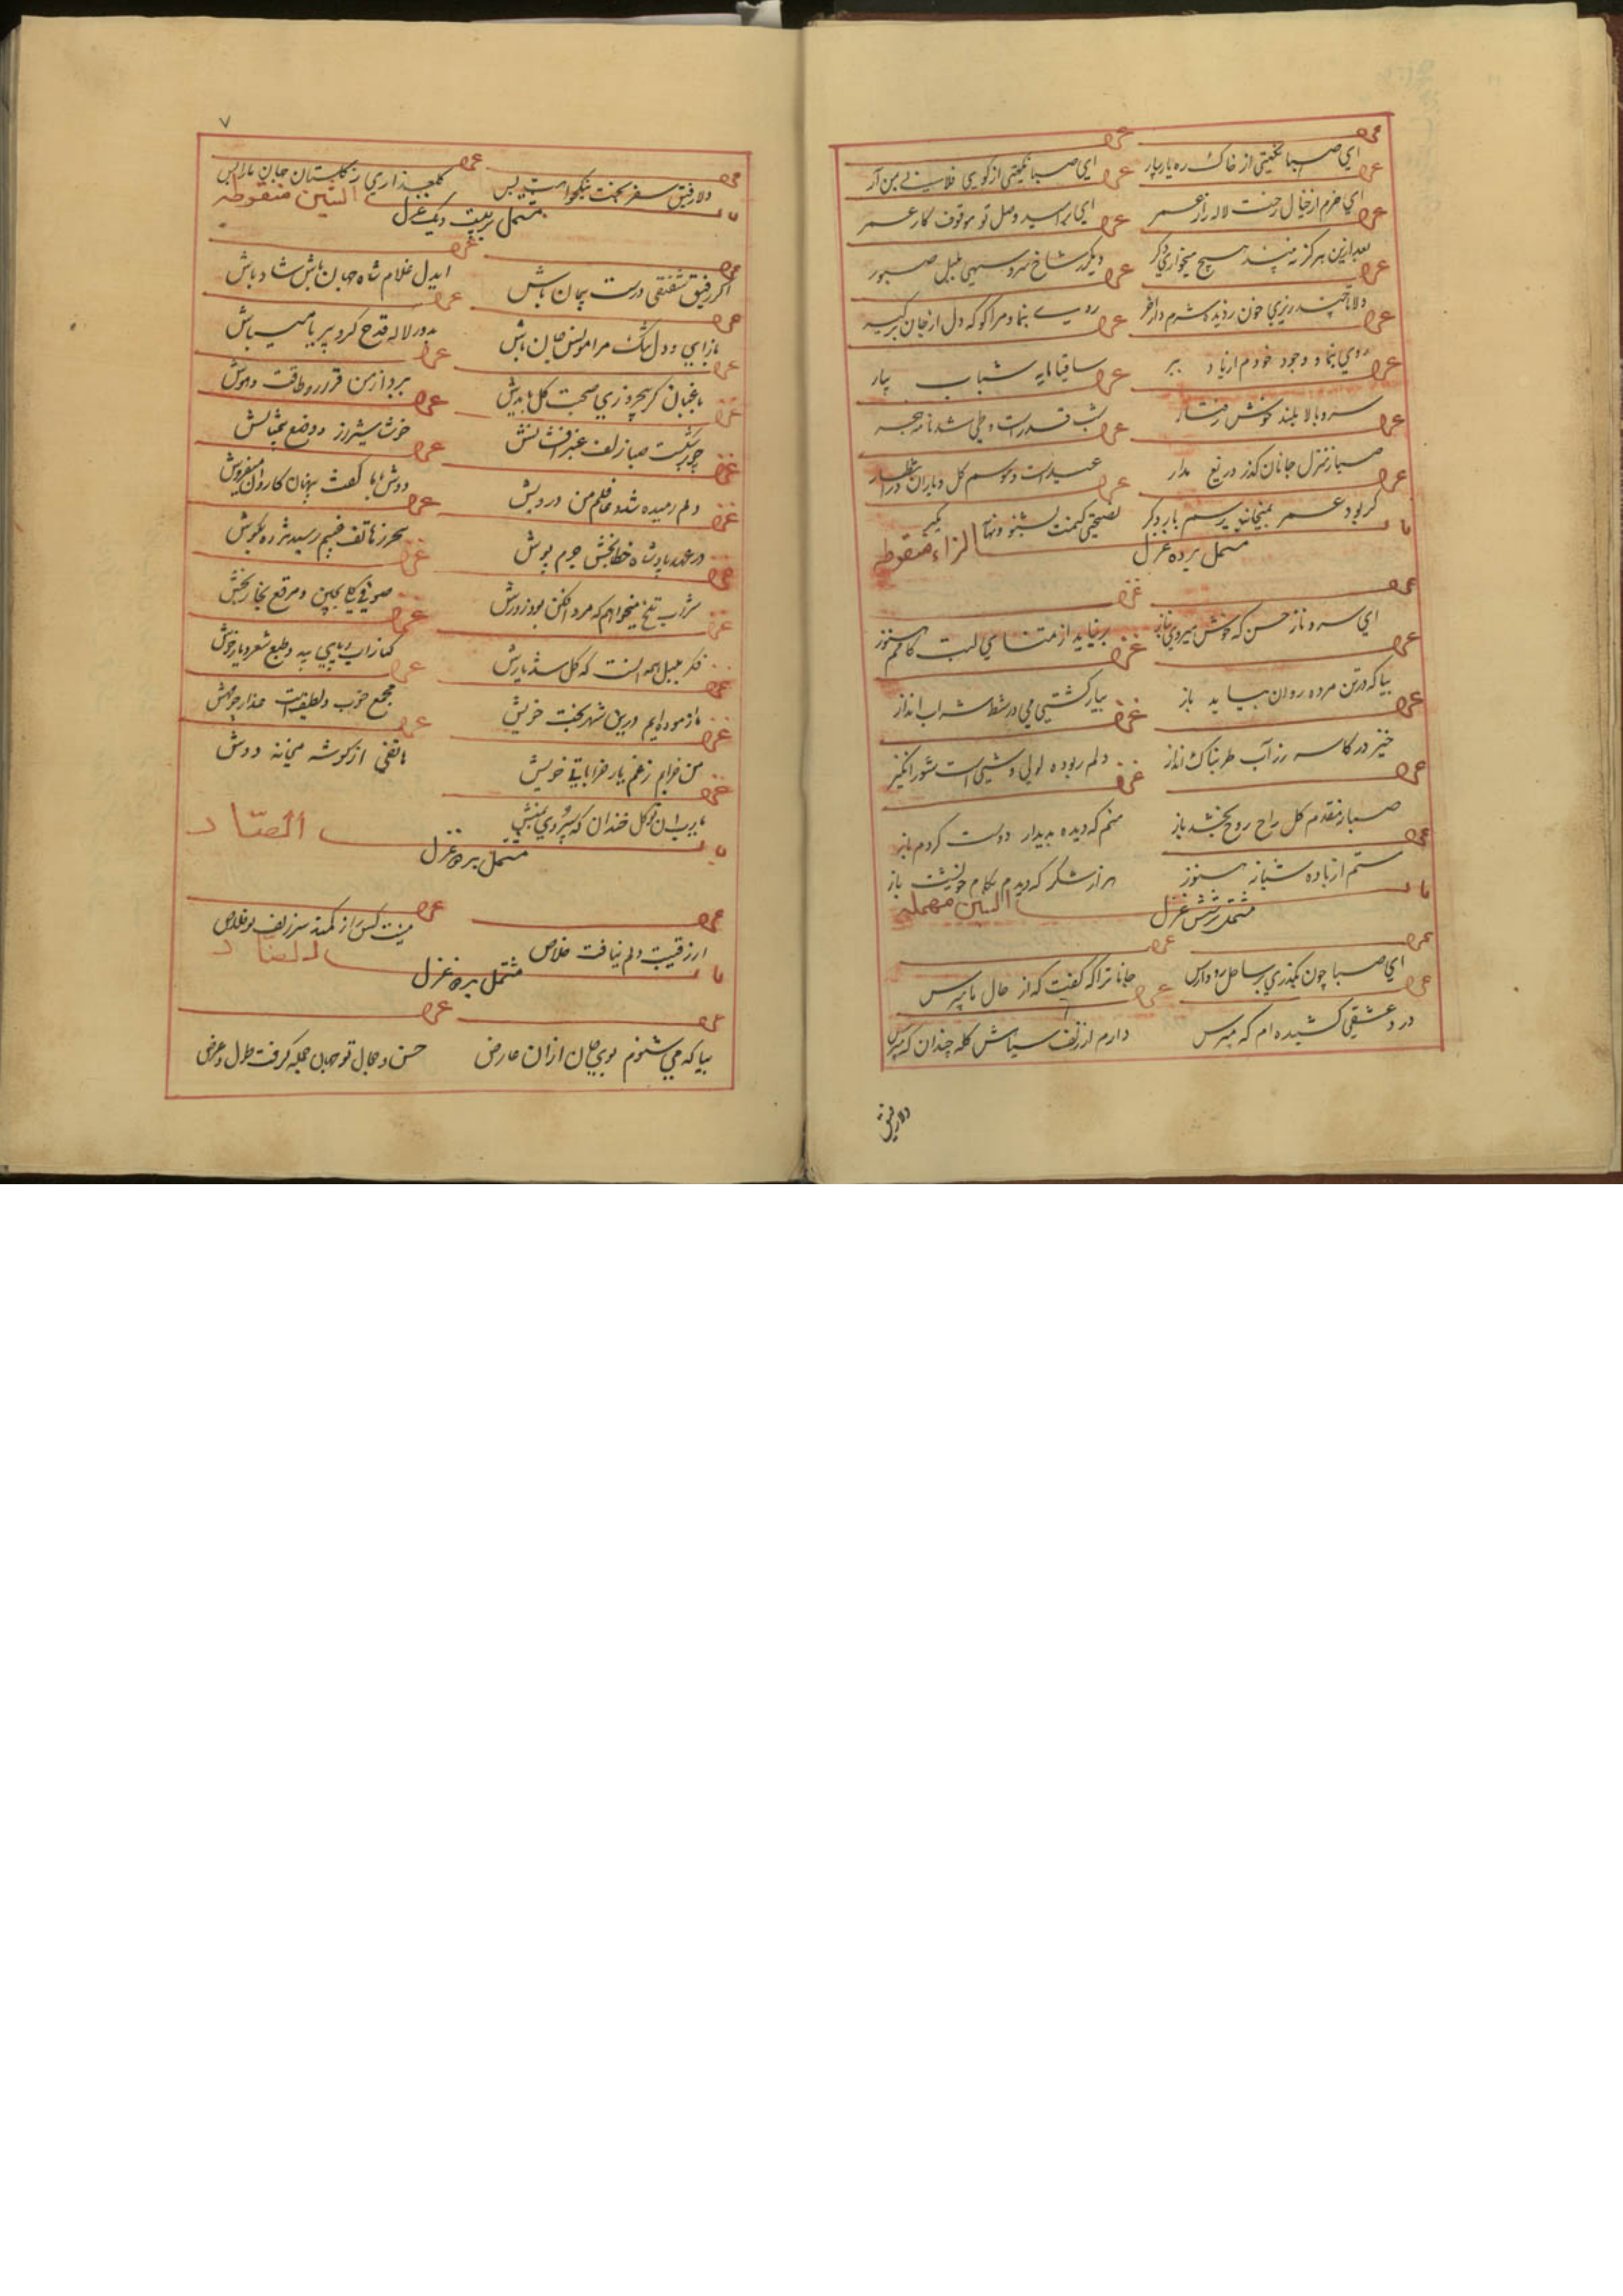 ای صبا نکهتی از خاک ره یار بیار
ای صبا نکهتی از کوی فلانی بمن آر
ای خرم از خیال رخت لاله زار عمر
ای برامید وصل تو موقوف کار عمر
دیگر شاخ سرو سهی بلبل صبور
دلا چند ریزی خون ز دیده شرم دار آخر
روی بنما و مرا گو که دل از جان برگیر
روی بنما و وجود خودم از یاد ببر
ساقیا مایه شباب بیار
سرو بالا بلند خوش رفتار
شب قدر است و طی شد نامه هجر
صبا ز منزل جانان گذر دریغ مدار
عید است و موسم گل و یاران در انتظار
گر بود عمر بمیخانه برسم بار دگر
نصیحتی کنمت بشنو و بهانه مگیر
باب الزاء منقوطه
مشتمل بر ده غزل
ای سرو ناز حسن که خوش میروی بناز
برنیاید از تمنای لبت کامم هنوز
بیا که در تن مرده روان بیاید باز
بیا و کشتی می در شط شراب انداز
خیز در کاسه زر آب طربناک انداز
دلم ربوده لولی وشی است شورانگیز
صبا ز مقدم گل راح روح بخشد باز
منم که دیده بدیدار دوست کردم باز
مستم از باده شبانه هنوز
هزار شکر که دیدم بکام خویشت باز
باب السین مهمله
مشتمل بر شش غزل
ای صبا چون بگذری بر ساحل رود ارس
جانا ترا که گفت که از حال ما مپرس
درد عشقی کشیده ام که مپرس
دارم از زلف سیاهش گله چندان که مپرس
دلا رفیق
۷
دلا رفیق سفر بخت نیکخواهت بس
گلعذاری ز گلستان جهان ما را بس
باب الشین منقوطه
مشتمل بر بیست و یک غزل
اگر رفیق شفیقی درست پیمان باش
ایدل غلام شاه جهان باش شاد باش
باز آی و دل تنگ مرا مونس جان باش
بدور لاله قدح گیر و بی ریا میباش
باغبان گر پنجروزی صحبت گل بایدش
ببرد از من قرار و طاقت و هوش
چو بر شکست صبا زلف عنبر افشانش
خوشا شیراز و وضع بیمثالش
دلم رمیده شد و غافلم من درویش
دوش با من گفت پنهان کاردانی تیز هوش
در عهد پادشاه خطا بخش جرم پوش
سحر ز هاتف غیبم رسید مژده بگوش
شراب تلخ میخواهم که مرد افکن بود زورش
صوفی گلی بچین و مرقع بخار بخش
فکر بلبل همه آنست که گل شد یارش
کنار آب و پای بید و طبع شعر و یار خوش
ما آزموده ایم درین شهر بخت خویش
مجمع خوبی و لطفست عذار چو مهش
من خرابم ز غم یار خراباتی خویش
هاتفی از گوشه میخانه دوش
یا رب آن نوگل خندان که سپردی بمنش
باب الصاد
مشتمل بر دو غزل
از رقیبت دلم نیافت خلاص
نیست کس را ز کمند سر زلف تو خلاص
باب الضاد
مشتمل بر دو غزل
بیا که می شنوم بوی جان از آن عارض
حسن و جمال تو جهان جمله گرفت طول و عرض